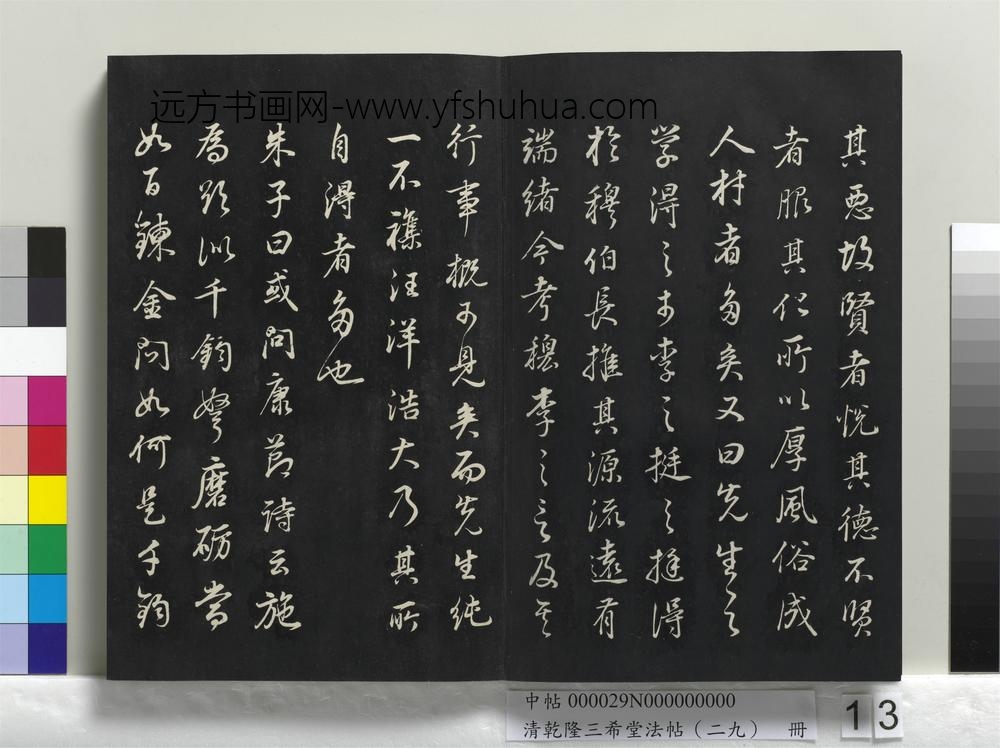 远方书画网-www.yfshuhua.com
其惡故賢者悦其德不賢
者服其化所以厚風俗成
人材者多矣又曰先生之
学得之于李之挺之挺得
於穆伯長推其源流遠有
端緒今考穆李之言及其
行事概可見矣而先生純
一不襍汪洋浩大乃其所
自得者多也
朱子曰或問康節詩云施
為欲似千鈞弩磨礪當
如百鍊金問如何是千鈞
中帖 000029N000000000
清乾隆三希堂法帖（二九） 冊
13